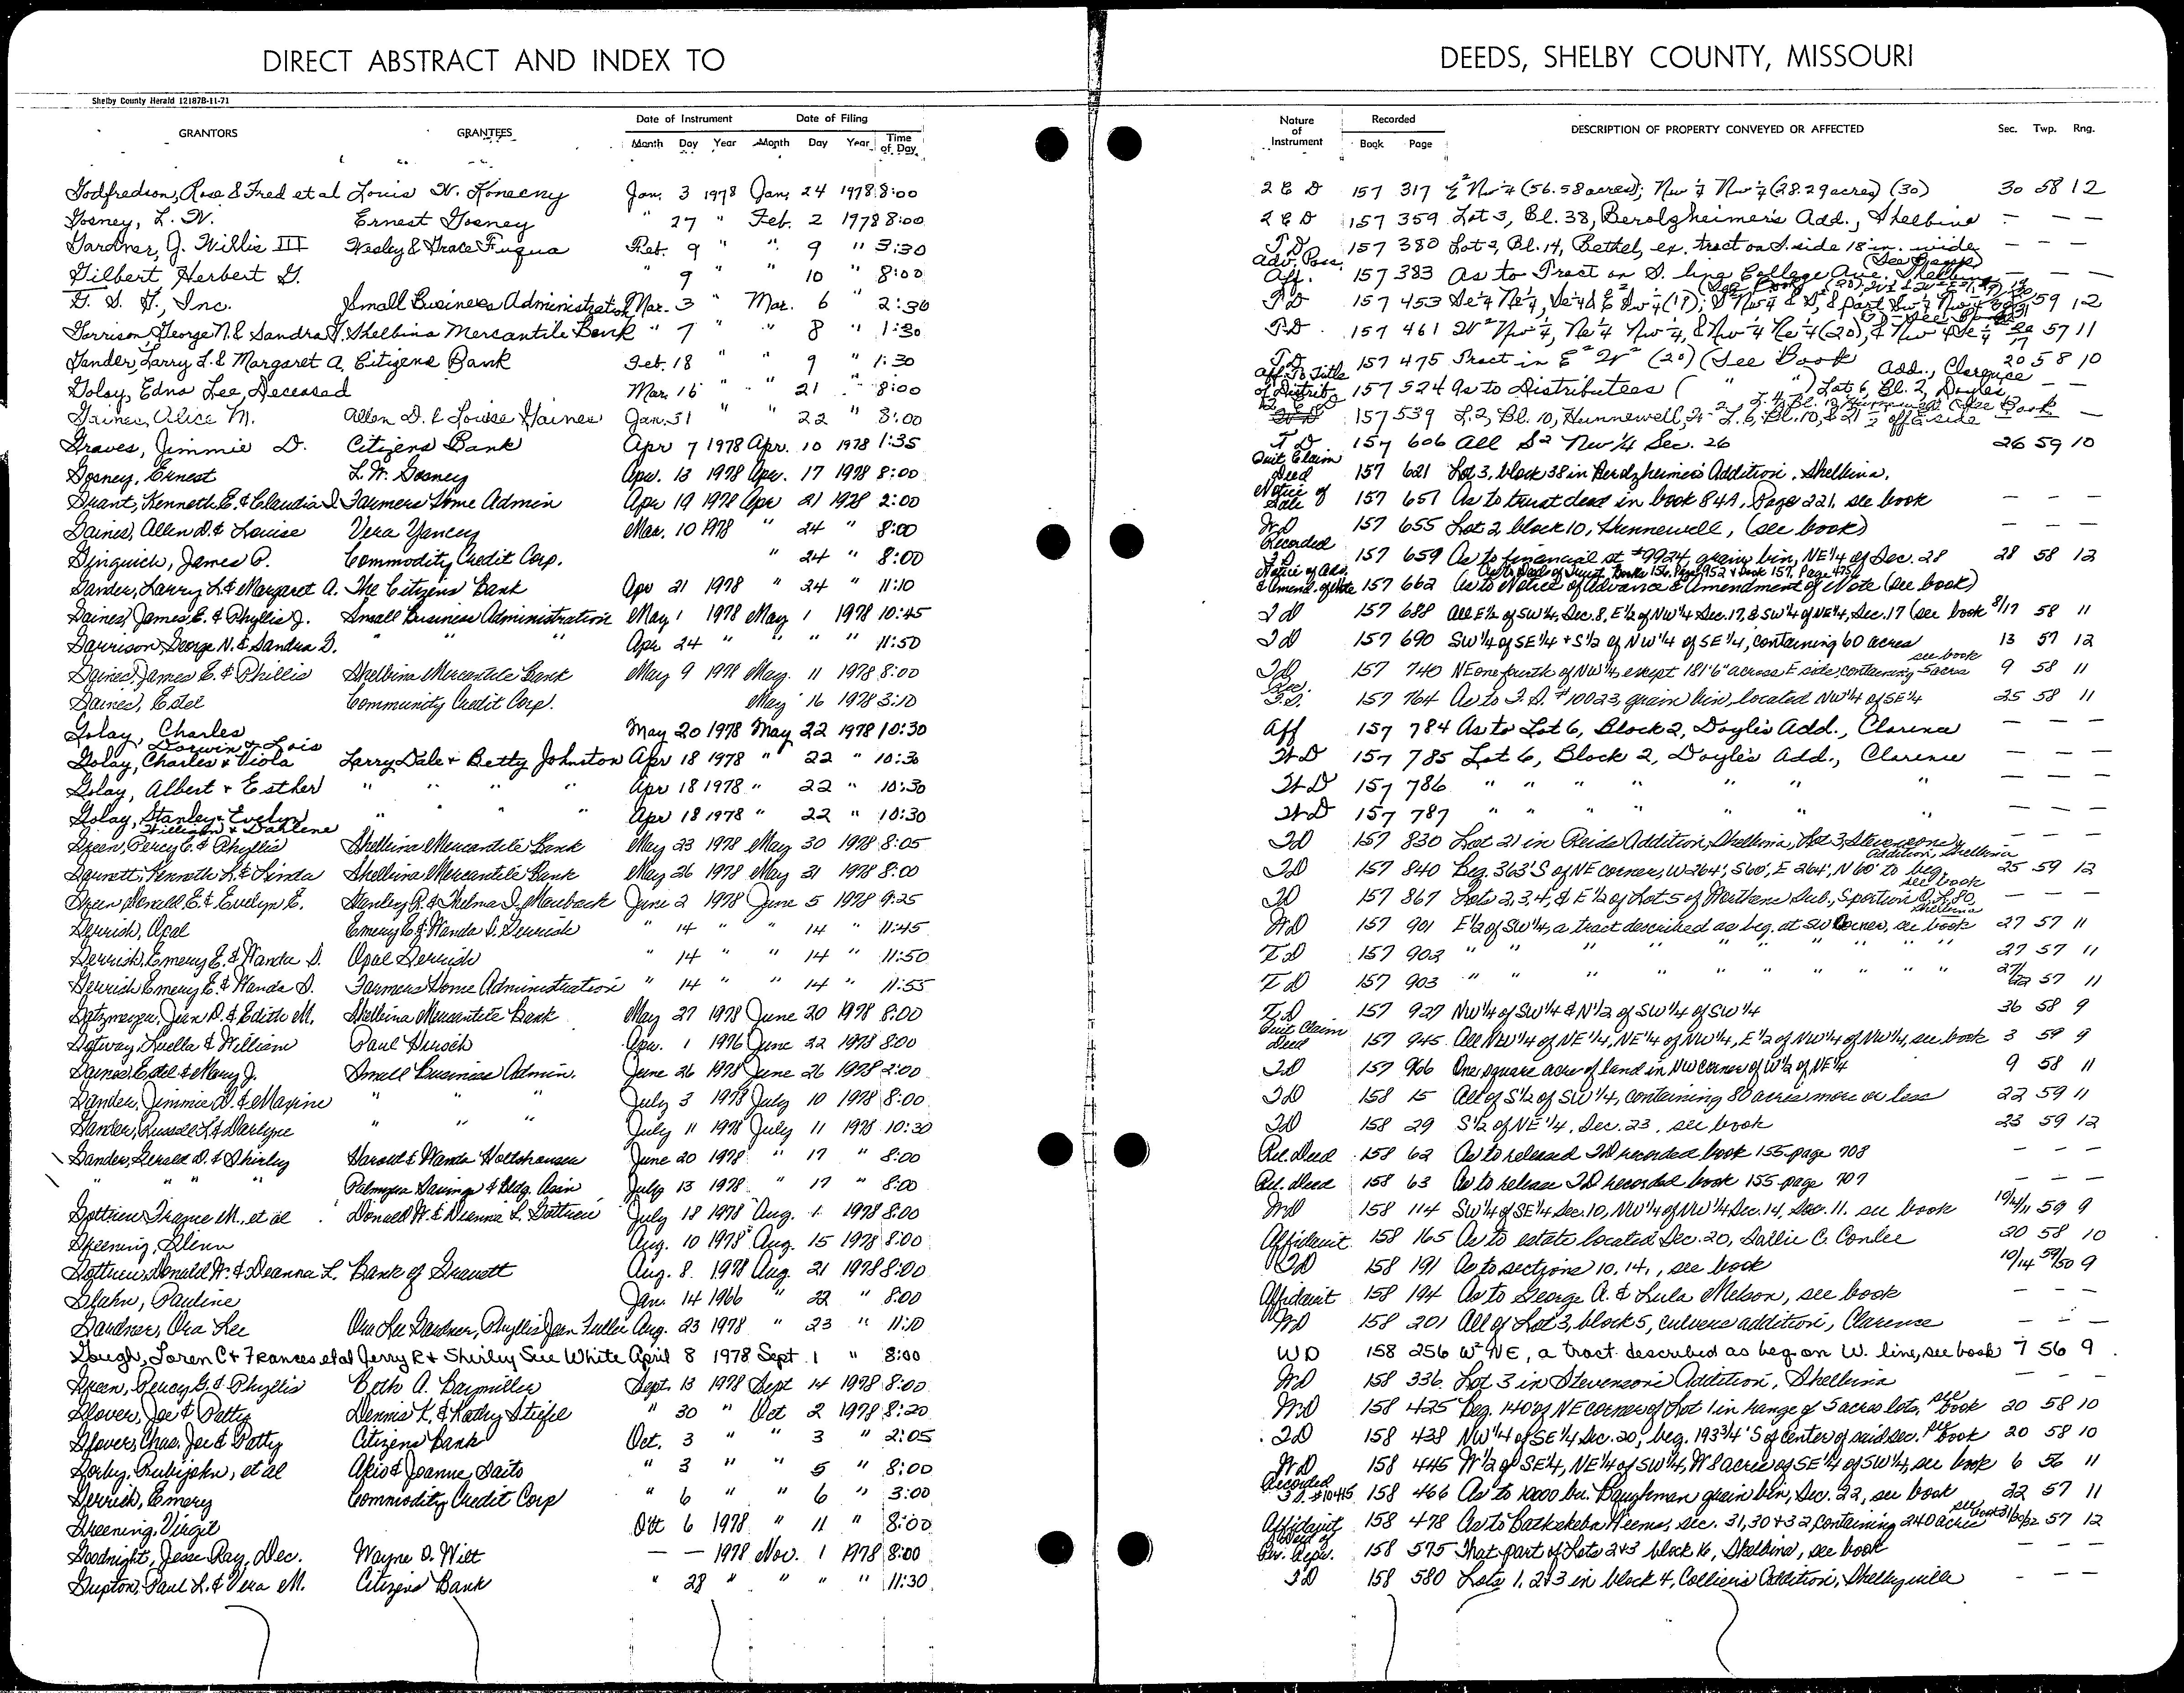 DIRECT ABSTRACT AND INDEX TO
DEEDS, SHELBY COUNTY, MISSOURI
Shelby County Herald 12187B-11-71
GRANTORS GRANTEES Date of Instrument Date of Filing
Month Day Year Month Day Year Time of Day
Nature of Instrument Recorded Book Page DESCRIPTION OF PROPERTY CONVEYED OR AFFECTED Sec. Twp. Rng.
Godfredson, Rose & Fred et al Louis W. Konecny Jan. 3 1978 Jan. 24 1978 8:00 2 E D 157 317 E² Nw¼ (56.58 acres); Nw¼ Nw¼ (28.29 acres) (30) 30 58 12
Gosney, L. W. Ernest Gosney " 27 " Feb. 2 1978 8:00 2 E D 157 359 Lot 3, Bl. 38, Berolzheimer's Add., Shelbina — — —
Gardner, J. Willis III Wesley & Grace Fuqua Feb. 9 " " 9 " 3:30 T D 157 380 Lot 2, Bl. 14, Bethel, ex. tract on S. side 18 in. wide — — —
Gilbert, Herbert G. " 9 " " 10 " 8:00 Adv. Poss. Aff. 157 383 As to Tract on S. line College Ave. Shelbina (See Book) — —
G. S. F., Inc. Small Business Administration Mar. 3 " Mar. 6 " 2:30 T D 157 453 Se¼ Ne¼, 59 12
Garrison, George N. & Sandra G. Shelbina Mercantile Bank " 7 " " 8 " 1:30 T D 157 461 W² Nw¼, Ne¼ Nw¼, & Nw¼ Ne¼ (20), & Nw¼ Se¼ 57 11
Gander, Larry L. & Margaret A. Citizens Bank Feb. 18 " " 9 " 1:30 T D 157 475 Tract in E² W² (20) (See Book 20 58 10
Golay, Edna Lee, Deceased Mar. 16 " " 21 " 8:00 Aff. To Title of Distrib. 157 524 As to Distributees ( " ") Lot 6, Bl. 2, Doyles Add., Clarence — —
Gaines, Alice M. Allen D. & Louise Gaines Jan. 31 " " 22 " 8:00 157 539 L. 2, Bl. 10, Hunnewell, L. 6, Bl. 10, off E side (See Book —
Graves, Jimmie D. Citizens Bank Apr 7 1978 Apr. 10 1978 1:35 T D 157 606 All S² Nw ¼ Sec. 26 26 59 10
Gosney, Ernest L. W. Gosney Apr. 13 1978 Apr. 17 1978 8:00 Quit Claim Deed 157 621 Lot 3, block 38 in Berolzheimer's Addition, Shelbina.
Grant, Kenneth E. & Claudia J. Farmers Home Admin Apr 19 1978 Apr 21 1978 2:00 Notice of Sale 157 651 As to trust deed in book 84A, Page 221, see book — — —
Gaines, Allen D. & Louise Vera Yancey Mar. 10 1978 " 24 " 8:00 WD 157 655 Lot 2 block 10, Hunnewell, (see book) — — —
Gingrich, James P. Commodity Credit Corp. " 24 " 8:00 Recorded F.S. 157 659 As to financial st #9924, grain bin, NE¼ of Sec. 28 28 58 12
Gander, Larry L. & Margaret A. The Citizens Bank Apr 21 1978 " 24 " 11:10 Notice of Adv. & Amend. of Note 157 662 As to Deed of Trust, Books 156, Page 952 & Book 157, Page 475 As to Notice of Advance & Amendment of Note (see book)
Gaines, James E. & Phyllis J. Small Business Administration May 1 1978 May 1 1978 10:45 TD 157 688 All E½ of SW¼, Sec. 8, E½ of NW¼ Sec. 17, & SW¼ of NE¼, Sec. 17 (see book 8/17 58 11
Garrison, George N. & Sandra G. " " " Apr 24 " " " " 11:50 TD 157 690 SW¼ of SE¼ & S½ of NW¼ of SE¼, containing 60 acres 13 57 12
Gaines, James E. & Phillis Shelbina Mercantile Bank May 9 1978 May 11 1978 8:00 TD 157 740 NE one fourth of NW¼, except 181'6" across E side, containing 5 acres see book 9 58 11
Gaines, Estel Community Credit Corp. May 16 1978 3:10 Rec. F.S. 157 764 As to F.S. #10023, grain bin, located NW¼ of SE¼ 25 58 11
Golay, Charles May 20 1978 May 22 1978 10:30 Aff 157 784 As to Lot 6, Block 2, Doyle's Add., Clarence — — —
Golay, Darwin & Lois Charles & Viola Larry Dale & Betty Johnston Apr 18 1978 " 22 " 10:30 WD 157 785 Lot 6, Block 2, Doyle's Add., Clarence — — —
Golay, Albert & Esther " " " " Apr 18 1978 " 22 " 10:30 WD 157 786 " " " " " " " — — —
Golay, Stanley & Evelyn William & Dahlene " " " Apr 18 1978 " 22 " 10:30 WD 157 787 " " " " " " " — — —
Green, Percy G. & Phyllis Shelbina Mercantile Bank May 23 1978 May 30 1978 8:05 TD 157 830 Lot 21 in Reids Addition, Shelbina, Lot 3, Stevensons Addition, Shelbina — — —
Garnett, Kenneth L. & Linda Shelbina Mercantile Bank May 26 1978 May 31 1978 8:00 TD 157 840 Beg. 363' S of NE corner, W 264', S 60', E 264', N 60' to beg. see book 25 59 12
Green, Donald E. & Evelyn E. Stanley R. & Thelma J. June 2 1978 June 5 1978 9:25 TD 157 867 Lots 2, 3, 4, & E½ of Lot 5 of Sub, S portion O.L. 80, Shelbina — — —
Gerrish, Opal Emery E. & Wanda S. Gerrish " 14 " " 14 " 11:45 WD 157 901 E½ of SW¼, a tract described as beg. at SW Corner, see book 27 57 11
Gerrish, Emery E. & Wanda S. Opal Gerrish " 14 " " 14 " 11:50 TD 157 902 " " " " " " " " " 27 57 11
Gerrish, Emery E. & Wanda S. Farmers Home Administration " 14 " " 14 " 11:55 TD 157 903 " " " " " " " " " 27/22 57 11
Gatzmeyer, Jean D. & Edith M. Shelbina Mercantile Bank May 27 1978 June 20 1978 8:00 TD 157 927 NW¼ of SW¼ & N½ of SW¼ of SW¼ 36 58 9
Gotway, Luella & William Paul Apr. 1 1976 June 22 1978 8:00 Quit Claim Deed 157 945 All NW¼ of NE¼, NE¼ of NW¼, E½ of NW¼ of NW¼, see book 3 59 9
Gaines, Estel & Mary J. Small Business Admin. June 26 1978 June 26 1978 2:00 TD 157 966 One square acre of land in NW corner of W½ of NE¼ 9 58 11
Gander, Jimmie D. & Maxine " " " July 3 1978 July 10 1978 8:00 TD 158 15 All of S½ of SW¼, containing 80 acres more or less 22 59 11
Gander, Russell L. & Darlyne " " " July 11 1978 July 11 1978 10:30 TD 158 29 S½ of NE¼, Sec. 23, see book 23 59 12
Gander, Gerald D. & Shirley Harold & Wanda Holtshouser June 20 1978 " 17 " 8:00 Rel. Deed 158 62 As to released TD recorded book 155 page 708 — — —
" " " " Palmyra Savings & Bldg. Assn July 13 1978 " 17 " 8:00 Rel. Deed 158 63 As to release TD recorded book 155 page 707 — — —
Gottrieu, M., et al Donald W. & Deanna L. Gottrieu July 18 1978 Aug. 1 1978 8:00 WD 158 114 SW¼ of SE¼ Sec. 10, NW¼ of NW¼ Sec. 14, Sec. 11, see book 10/14/11 59 9
Greening, Glenn Aug. 10 1978 Aug. 15 1978 8:00 Affidavit 158 165 As to estate located Sec. 20, Sallie C. Conlee 20 58 10
Gottrieu, Donald W. & Deanna L. Bank of Gravett Aug. 8 1978 Aug. 21 1978 8:00 TD 158 191 As to sections 10, 14, , see book 10/14 59/50 9
Glahn, Pauline Jan. 14 1966 " 22 " 8:00 Affidavit 158 194 As to George A. & Lula Melson, see book — — —
Gardner, Ora Lee Ora Lee Gardner, Phyllis Jean Fuller Aug. 23 1978 " 23 " 11:10 WD 158 201 All of Lot 3, block 5, culvers addition, Clarence — — —
Gough, Loren C & Frances et al Jerry R & Shirley Sue White April 8 1978 Sept. 1 " 8:00 WD 158 256 W² NE, a tract described as beg on W. line, see book 7 56 9
Green, Percy G. & Phyllis Beth A. Baymiller Sept. 13 1978 Sept 14 1978 8:00 WD 158 336 Lot 3 in Stevensons Addition, Shelbina — — —
Glover, Joe & Patty Dennis K. & Kathy Stiefel " 30 " Oct 2 1978 8:20 WD 158 425 Beg. 140' of NE corner of Lot 1 in range of 5 acres lots, see book 20 58 10
Glover, Chas. Joe & Patty Citizens Bank Oct. 3 " " 3 " 2:05 TD 158 438 NW¼ of SE¼ Sec. 20, beg. 193¾' S of center of said sec. see book 20 58 10
Gorby, Rubijohn, et al Akio & Joanne Saito " 3 " " 5 " 8:00 WD 158 445 W½ of SE¼, NE¼ of SW¼, W 8 acres of SE¼ of SW¼, see book 6 56 11
Gerrish, Emery Commodity Credit Corp " 6 " " 6 " 3:00 Recorded F.S. #10415 158 466 As to 10000 bu. Baughman grain bin, Sec. 22, see book 22 57 11
Greening, Virgil Oct 6 1978 " 11 " 8:00 Affidavit 158 478 As to Heems, sec. 31, 30 & 32, containing 240 acres see book 31/30/32 57 12
Goodnight, Jesse Ray, Dec. Wayne D. Wilt — — 1978 Nov. 1 1978 8:00 Deed of Per. Repr. 158 575 That part of Lots 2 & 3 block 16, Shelbina, see book — — —
Gupton, Paul L. & Vera M. Citizens Bank " 28 " " " " 11:30 TD 158 580 Lots 1, 2 & 3 in block 4, Collier's Addition, Shelbyville — — —